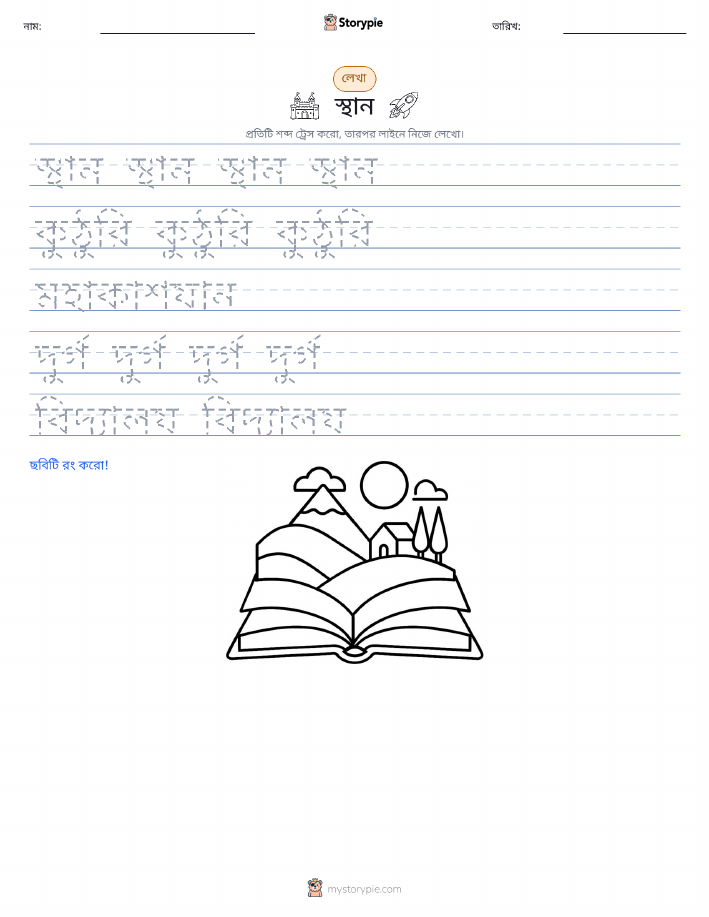 নাম:
Storypie
তারিখ:
লেখা
স্থান
প্রতিটি শব্দ ট্রেস করো, তারপর লাইনে নিজে লেখো।
স্থান স্থান স্থান স্থান
কুঠুরি কুঠুরি কুঠুরি
মহাকাশযান
দুর্গ দুর্গ দুর্গ দুর্গ
বিদ্যালয় বিদ্যালয়
ছবিটি রং করো!
mystorypie.com